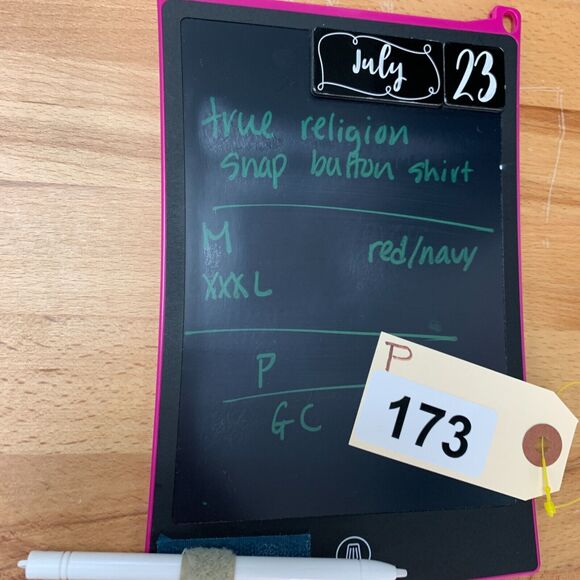 July 23
true religion
snap button shirt
M red/navy
XXXL
P
GC
P
173